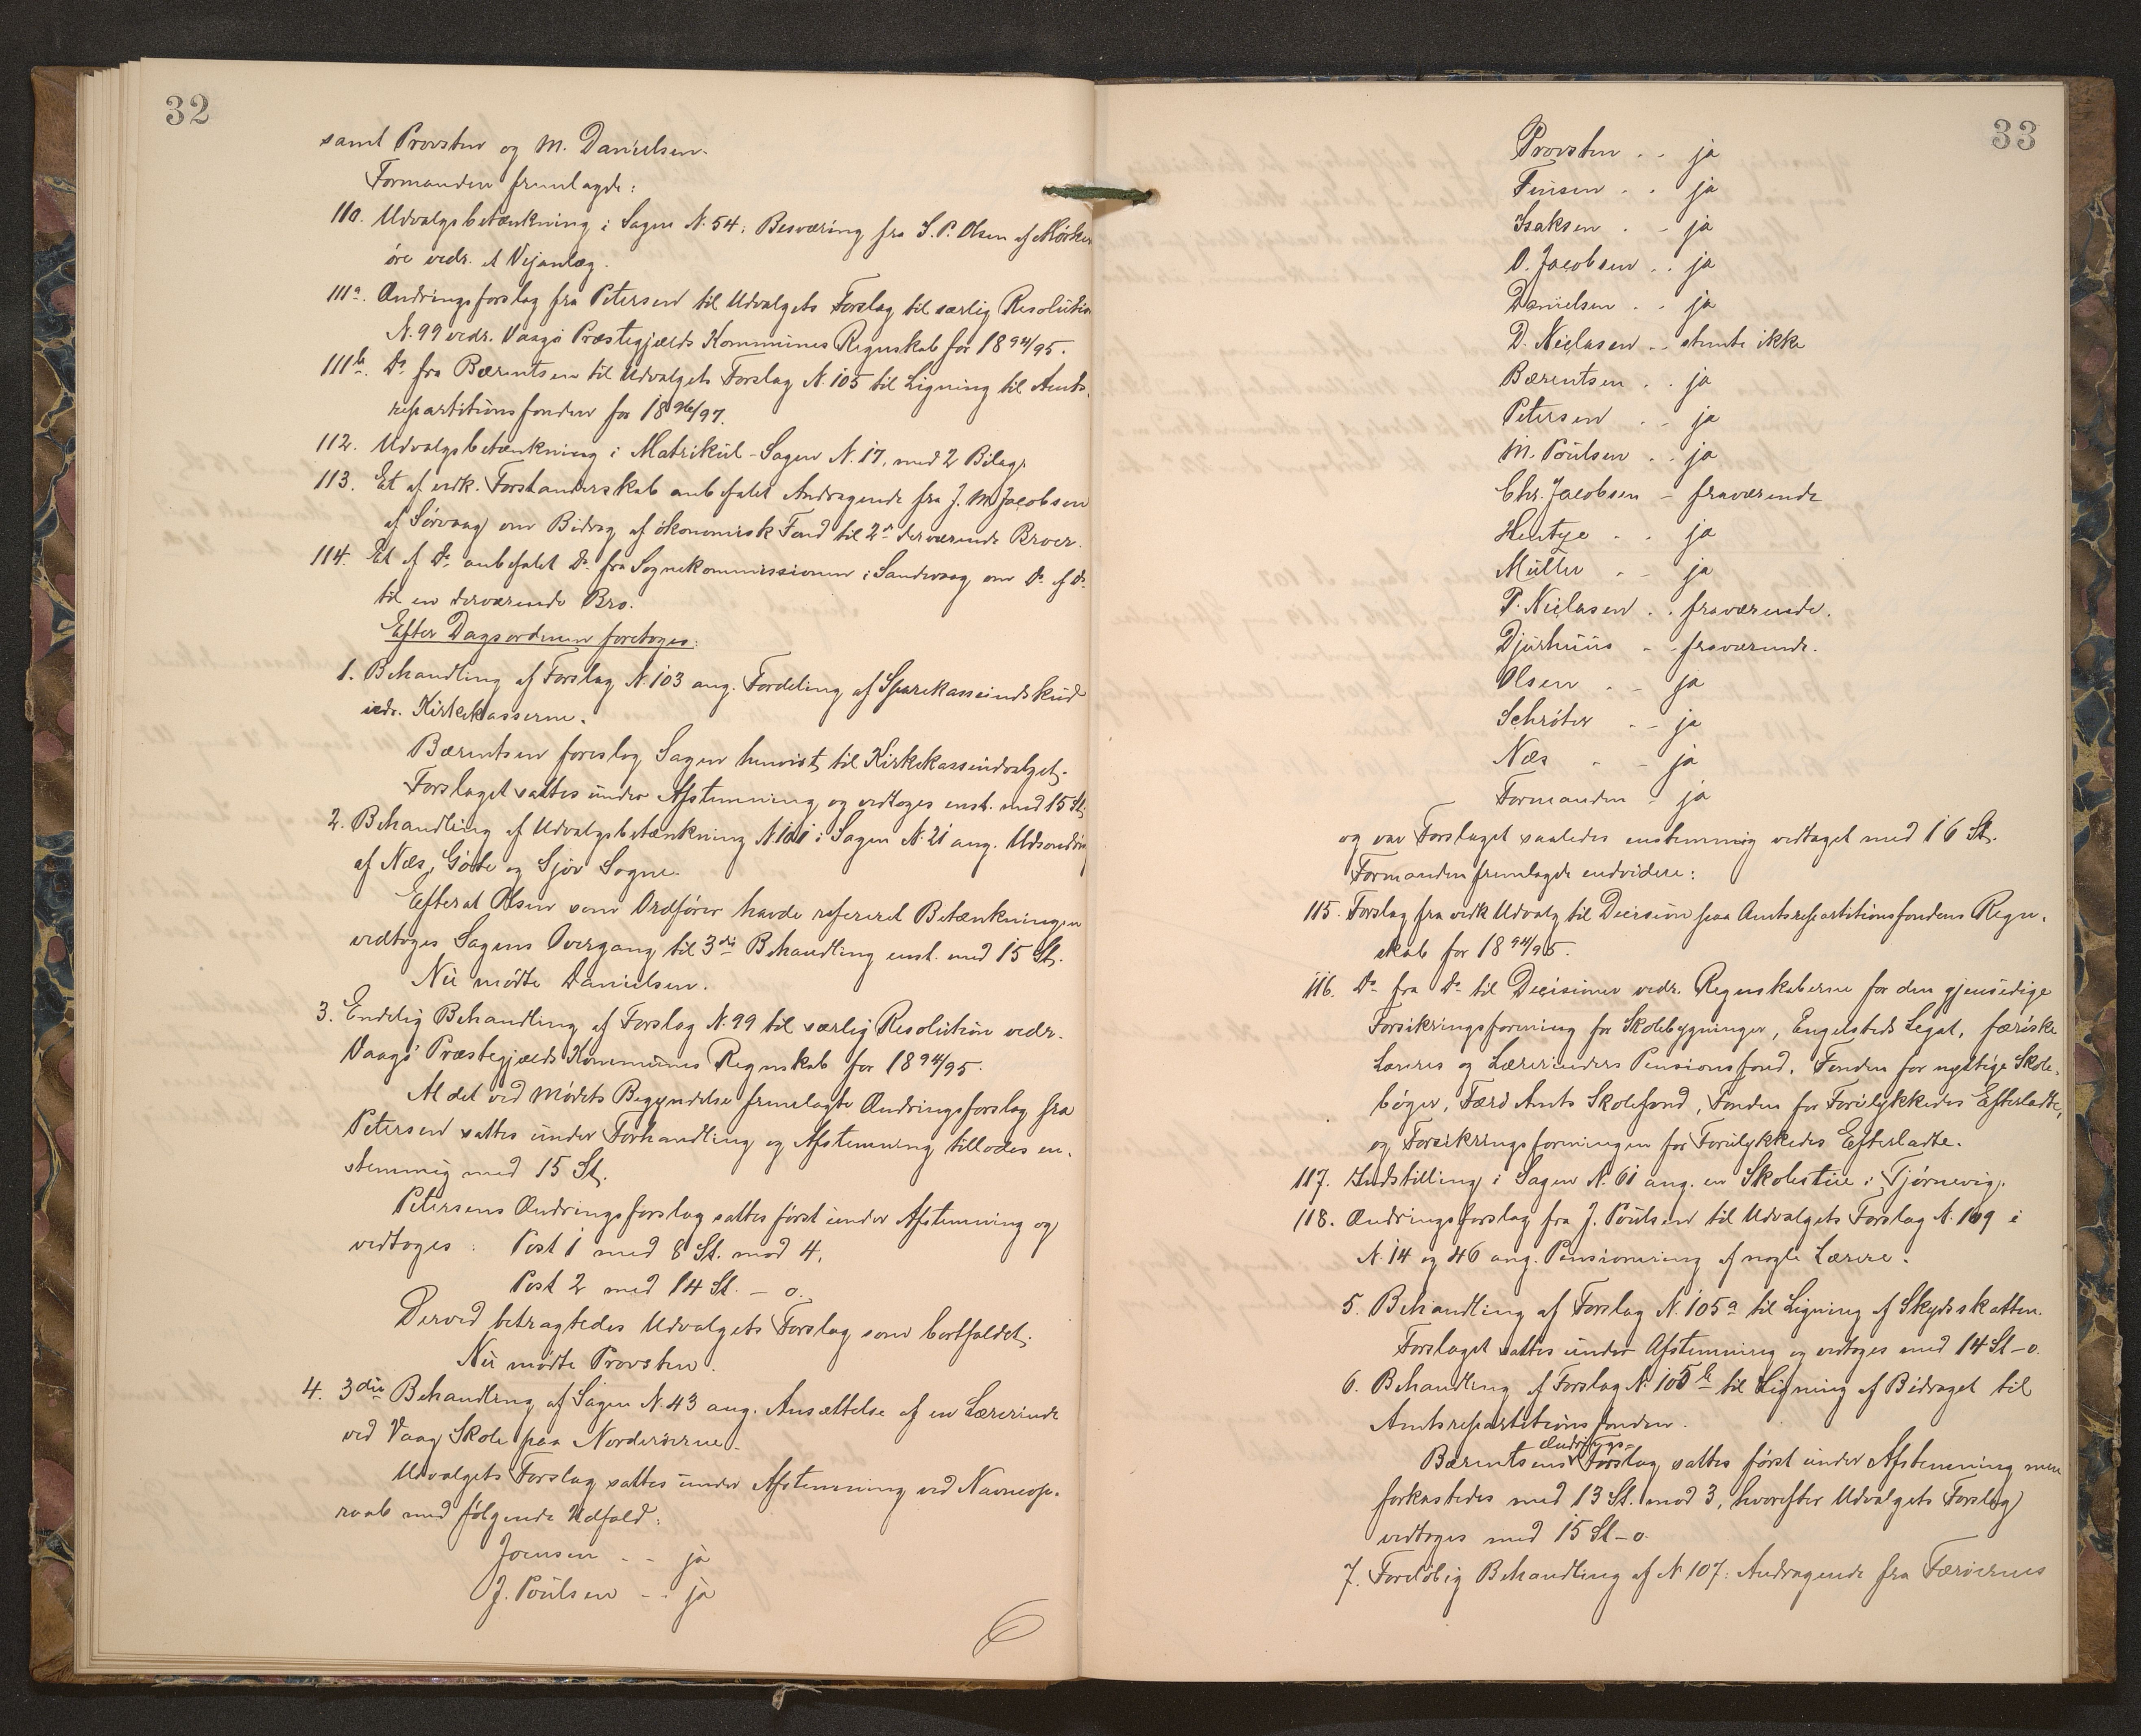 32
samt Provsten og M. Danielsen.
Formanden fremlagde:
110. Udvalgsbetænkning i Sagen N. 54: Besværing fra S. P. Olsen af Mørke
øre vedr. et Vejanlæg.
111a. Ændringsforslag fra Petersen til Udvalgets Forslag til særlig Resolution
N. 99 vedr. Vaagø Præstegjælds Kommunes Regnskab for 1894/95.
111b. Do fra Bærentsen til Udvalgets Forslag N. 105 til Ligning til Amts-
repartitionsfonden for 1896/97.
112. Udvalgsbetænkning i Matrikul-Sagen N. 17, med 2 Bilag.
113. Et af vedk. Forstanderskab anbefalet Andragende fra J. M. Jacobsen
af Sørvaag om Bidrag af økonomisk Fond til 2de derværende Broer.
114. Et af Do anbefalet Do fra Sognekommissionen i Sandevaag om Do af Do
til en derværende Bro.
Efter Dagsordenen foretoges:
1. Behandling af Forslag N. 103 ang. Fordeling af Sparekasseindskud
vedr. Kirkekasserne.
Bærentsen foreslog Sagen henvist til Kirkekasseudvalget.
Forslaget sattes under Afstemning og vedtoges enst. med 15 St.
2. Behandling af Udvalgsbetænkning N. 101 i Sagen N. 21 ang. Udsondring
af Næs, Gøte og Sjov Sogne.
Efter at Olsen som Ordfører havde refereret Betænkningen
vedtoges Sagens Overgang til 3die Behandling enst. med 15 St.
Nu mødte Danielsen.
3. Endelig Behandling af Forslag N. 99 til særlig Resolution vedr.
Vaagø Præstegjælds Kommunes Regnskab for 1894/95.
At det ved Mødets Begyndelse fremlagte Ændringsforslag fra
Petersen sattes under Forhandling og Afstemning tillodes en-
stemmig med 15 St.
Petersens Ændringsforslag sattes først under Afstemning og
vedtoges: Post 1 med 8 St. mod 4.
Post 2 med 14 St. – 0.
Derved betragtedes Udvalgets Forslag som bortfaldet.
Nu mødte Provsten.
4. 3die Behandling af Sagen N. 43 ang. Ansættelse af en Lærerinde
ved Vaag Skole paa Norderøerne.
Udvalgets Forslag sattes under Afstemning ved Navneop-
raab med følgende Udfald:
Joensen - - ja
J. Poulsen - - ja
6
33
Provsten - - ja
Finsen - - ja
Isaksen - - ja
O. Jacobsen - - ja
Danielsen - - ja
D. Nielasen - - stemte ikke
Bærentsen - - ja
Petersen - - ja
M. Poulsen - - ja
Chr. Jacobsen - fraværende
Hentze - - ja
Müller - - ja
P. Nielasen - - fraværende.
Djurhuus - - fraværende.
Olsen - - ja
Schrøter - - ja
Næs - - ja
Formanden - ja
og var Forslaget saaledes enstemmig vedtaget med 16 St.
Formanden fremlagde endvidere:
115. Forslag fra vedk Udvalg til Decision paa Amtsrepartitionsfondens Regn-
skab for 1894/95.
116. Do fra Do til Decisioner vedr. Regnskaberne for den gjensidige
Forsikringsforening for Skolebygninger, Engelsteds Legat, færøske
Læreres og Lærerinders Pensionsfond, Fonden for nyttige Skole-
bøger, Færø Amts Skolefond, Fonden for Forulykkedes Efterladte,
og Forsikringsforeningen for Forulykkedes Efterladte.
117. Indstilling i Sagen N. 61 ang. en Skolestue i Tjørnevig.
118. Ændringsforslag fra J. Poulsen til Udvalgets Forslag N. 109 i
N. 14 og 46 ang. Pensionering af nogle Lærere.
5. Behandling af Forslag N. 105a til Ligning af Skydsskatten.
Forslaget sattes under Afstemning og vedtoges med 14 St – 0.
6. Behandling af Forslag N. 105b til Ligning af Bidraget til
Amtsrepartitionsfonden.
Ændrings-
Bærentsens Forslag sattes først under Afstemning men
forkastedes med 13 St. mod 3, hvorefter Udvalgets Forslag
vedtoges med 15 St – 0.
7. Foreløbig Behandling af N. 107: Andragende fra Færøernes